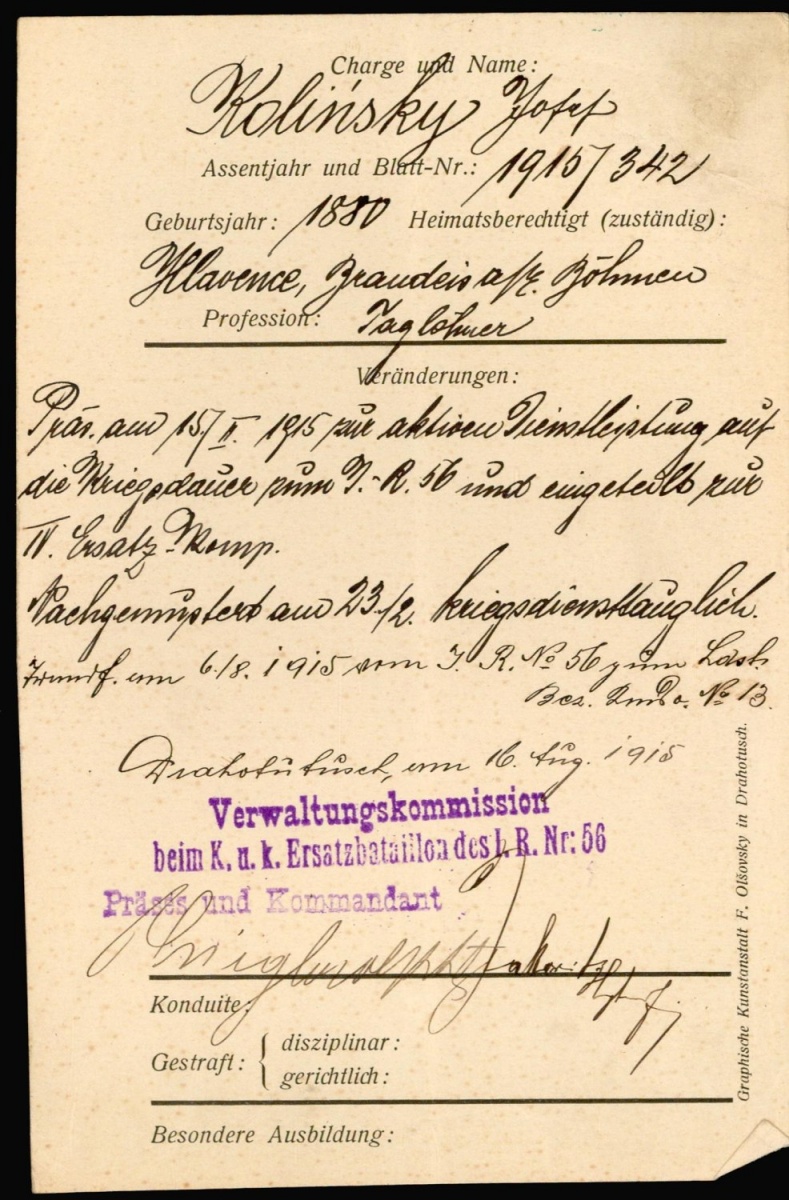 Charge und Name:
Kolińsky Josef
Assentjahr und Blatt-Nr.: 1915/342
Geburtsjahr: 1880 Heimatsberechtigt (zuständig):
Hlavence, Brandeis a/E. Böhmen
Profession: Taglöhner
Veränderungen:
Präs. am 15/II. 1915 zur aktiven Dienstleistung auf
die Kriegsdauer zum I.-R. 56 und eingeteilt zur
IV. Ersatz-Komp.
Nachgemustert am 23./2. kriegsdiensttauglich.
Transf. am 6./8. 1915 vom I. R. No 56 zum Ldst.
Bez. Kmdo. No 13.
Drahotusch, am 16. Aug. 1915
Verwaltungskommission
beim K. u. k. Ersatzbataillon des I. R. Nr: 56
Präses und Kommandant
Konduite:
Gestraft: { disziplinar:
gerichtlich:
Besondere Ausbildung:
Graphische Kunstanstalt F. Olšovsky in Drahotusch.